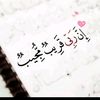 إِنَّ رَبِّي قَرِيبٌ مُّجِيبٌ